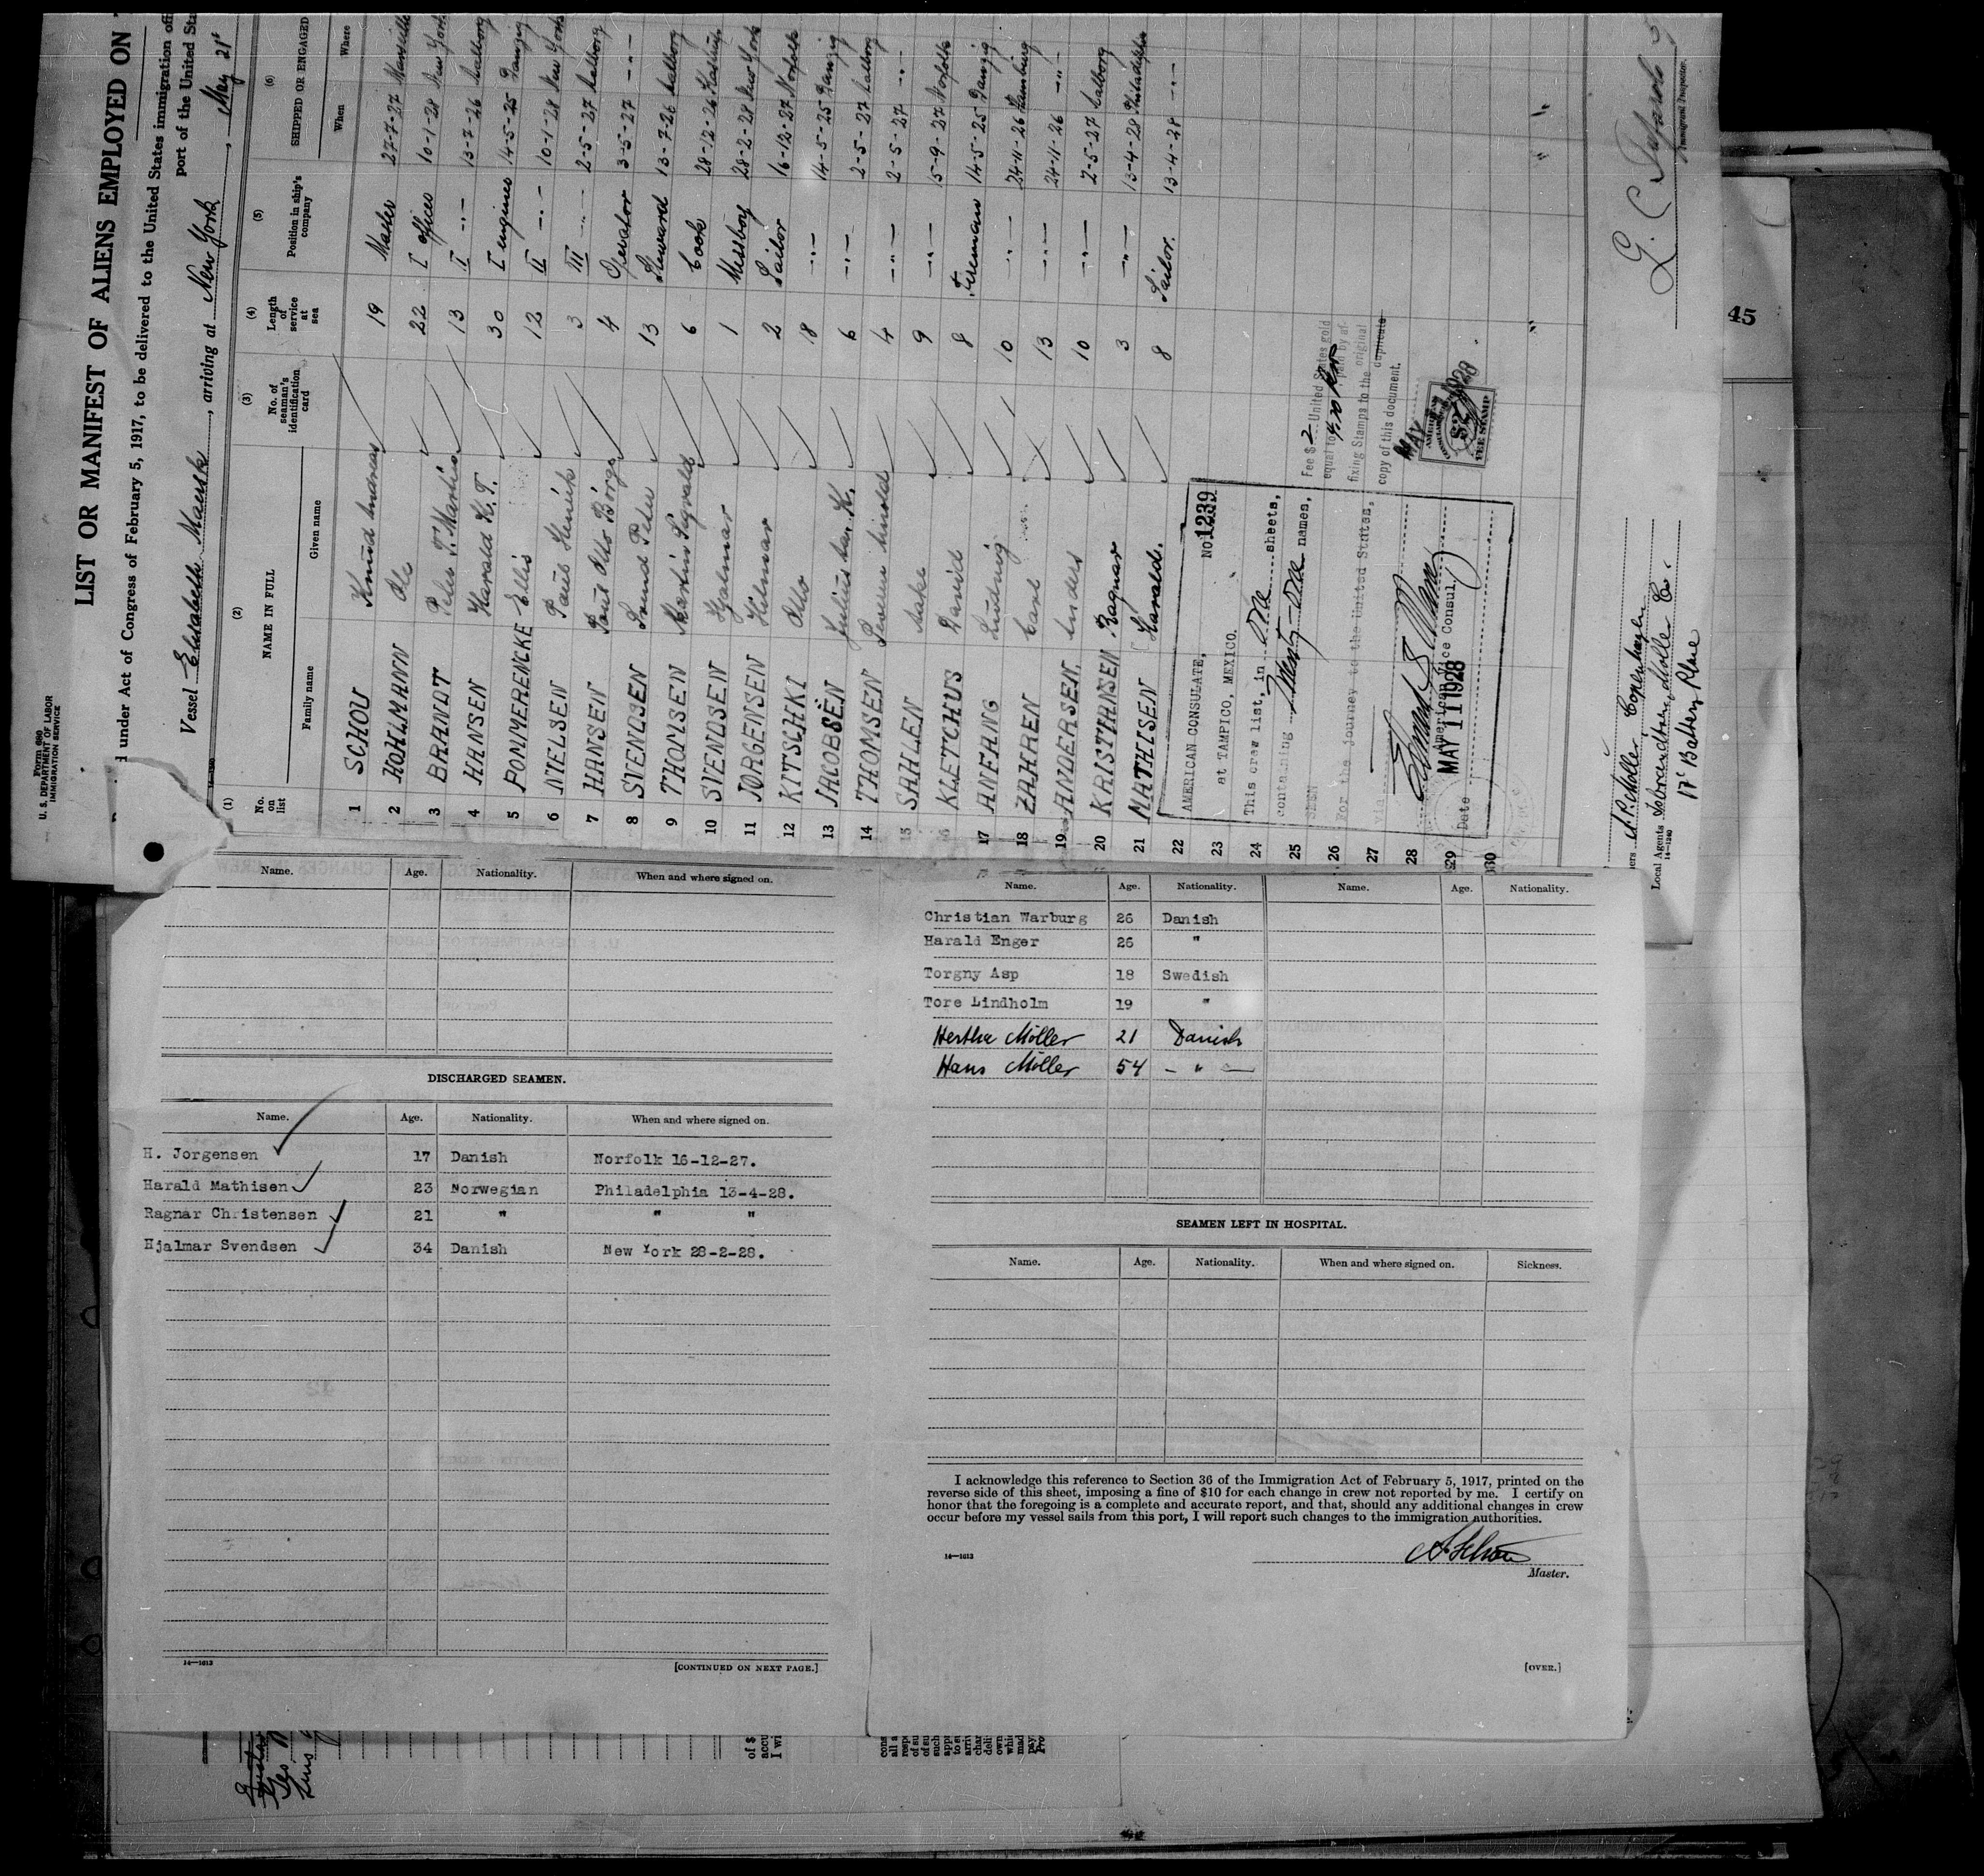 Form 680
U. S. DEPARTMENT OF LABOR
IMMIGRATION SERVICE
LIST OR MANIFEST OF ALIENS EMPLOYED ON
under Act of Congress of February 5, 1917, to be delivered to the United States immigration
port of the United
Vessel Elisabeth Maersk, arriving at New York, May 21
(1) (2) (3) (4) (5) (6)
No. on list NAME IN FULL No. of seaman's identification card Length of service at sea Position in ship's company SHIPPED OR ENGAGED
Family name Given name When Where
1 SCHOU Knud Andreas 19 Master 27-7-27 Marseille
2 HOHLMANN Ole 22 I officer 10-1-28 New York
3 BRANDT Peder T. Martin 13 II -"- 13-7-26 Aalborg
4 HANSEN Harald K. T. 30 I engineer 14-5-25 Danzig
5 POMMERENCKE Ellis 12 II -"- 10-1-28 New York
6 NIELSEN Paul Henrik 3 III -"- 2-5-27 Aalborg
7 HANSEN Poul Otto Börge 4 Operator 3-5-27 -"-
8 SVENDSEN Svend Peder 13 Steward 13-7-26 Aalborg
9 THOMSEN Martin Sigvald 6 Cook 28-12-26
10 SVENDSEN Hjalmar 1 Messboy 28-2-28 New York
11 JORGENSEN Hilmar 2 Sailor 16-12-27 Norfolk
12 KITSCHKI Otto 18 -"- 14-5-25 Danzig
13 JACOBSEN Julius K. 6 -"- 2-5-27 Aalborg
14 THOMSEN Arnold 4 -"- 2-5-27 -"-
15 SAHLEN Aake 9 -"- 15-9-27 Norfolk
16 KLETCHUS David 8 Fireman 14-5-25 Danzig
17 ANFANG Ludwig 10 -"- 24-11-26 Hamburg
18 ZAHREN Carl 13 -"- 24-11-26 -"-
19 ANDERSEN Anders 10 -"- 2-5-27 Aalborg
20 KRISTIANSEN Ragnar 3 -"- 13-4-28 Philadelphia
21 MATHISEN Harald. 8 Sailor. 13-4-28 -"-
22
23
24
25
26
27
28
29
30
AMERICAN CONSULATE, No. 1239
at TAMPICO, MEXICO.
This crew list, in One sheets,
containing Twenty-One names,
SEEN
For the journey to the United States,
via
American Vice Consul
Date MAY 11 1928
Fee $ 2 United States gold
equal to 4.20 paid by af-
fixing Stamps to the original
duplicate
copy of this document.
MAY 1928
AMERICAN
$2
FEE STAMP
A.P. Moller Copenhagen
Local Agents Co.
14-1240
17 Battery Place
Immigrant Inspector.
45
Name. Age. Nationality. When and where signed on.
DISCHARGED SEAMEN.
Name. Age. Nationality. When and where signed on.
H. Jorgensen 17 Danish Norfolk 16-12-27.
Harald Mathisen 23 Norwegian Philadelphia 13-4-28.
Ragnar Christensen 21 " " "
Hjalmar Svendsen 34 Danish New York 28-2-28.
14—1613
[CONTINUED ON NEXT PAGE.]
Name. Age. Nationality. Name. Age. Nationality.
Christian Warburg 26 Danish
Harald Enger 26 "
Torgny Asp 18 Swedish
Tore Lindholm 19 "
Hertha Möller 21 Danish
Hans Möller 54 - " -
SEAMEN LEFT IN HOSPITAL.
Name. Age. Nationality. When and where signed on. Sickness.
I acknowledge this reference to Section 36 of the Immigration Act of February 5, 1917, printed on the
reverse side of this sheet, imposing a fine of $10 for each change in crew not reported by me. I certify on
honor that the foregoing is a complete and accurate report, and that, should any additional changes in crew
occur before my vessel sails from this port, I will report such changes to the immigration authorities.
14—1613
A. Schou
Master.
[OVER.]